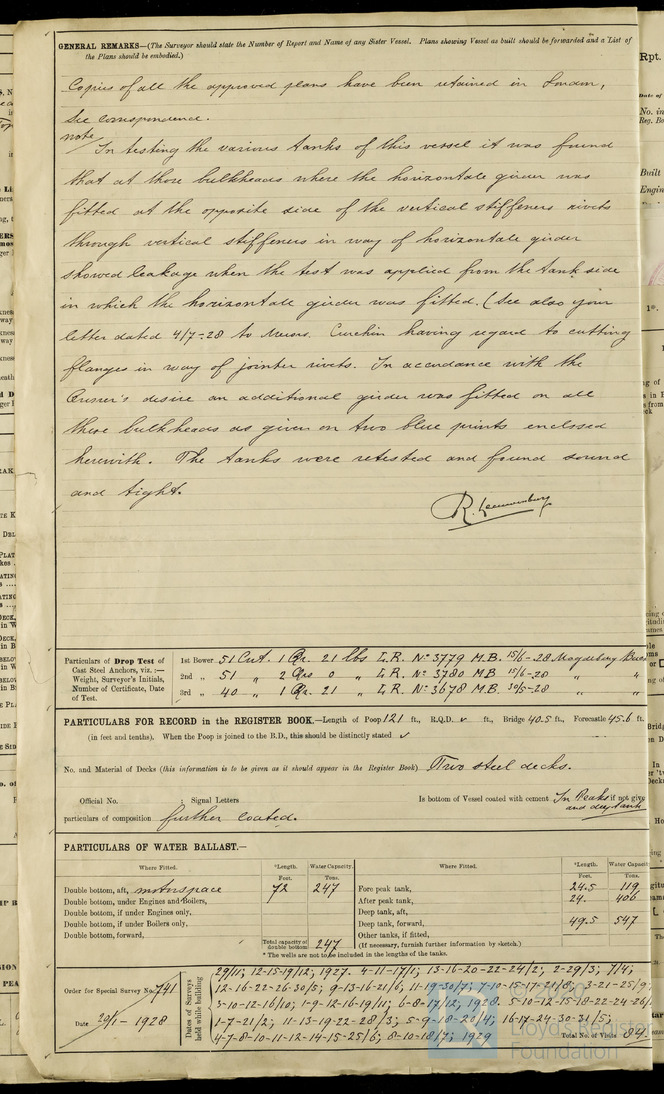 GENERAL REMARKS—(The Surveyor should state the Number of Report and Name of any Sister Vessel. Plans showing Vessel as built should be forwarded and a List of
the Plans should be embodied.)
Copies of all the approved plans have been retained in London,
See correspondence.
note
In testing the various tanks of this vessel it was found
that at those bulkheads where the horizontale girder was
fitted at the opposite side of the vertical stiffeners rivets
through vertical stiffeners in way of horizontale girder
showed leakage when the test was applied from the tank side
in which the horizontale girder was fitted. (See also your
letter dated 4/7-28 to Messrs. having regard to cutting
flanges in way of jointer rivets. In accordance with the
Owner's desire an additional girder was fitted on all
these bulkheads as given on two blue prints enclosed
herewith. The tanks were retested and found sound
and tight.
R. Leeuwenburg
Particulars of Drop Test of
Cast Steel Anchors, viz.:—
Weight, Surveyor's Initials,
Number of Certificate, Date
of Test.
1st Bower 51 Cwt. 1 Qr. 21 lbs L.R. No 3779 M.B. 15/6-28 Magdeburg
2nd „ 51 „ 2 Qrs 0 „ L.R. No 3780 M.B 15/6-28 „ „
3rd „ 40 „ 1 Qr. 21 „ L.R. No 3678 M.B. 30/5-28 „ „
PARTICULARS FOR RECORD in the REGISTER BOOK.—Length of Poop 121 ft., R.Q.D. ✓ ft., Bridge 40.5 ft., Forecastle 45.6 ft.
(in feet and tenths). When the Poop is joined to the B.D., this should be distinctly stated ✓
No. and Material of Decks (this information is to be given as it should appear in the Register Book) Two steel decks.
Official No. ; Signal Letters Is bottom of Vessel coated with cement In Peaks if not give
and deeptank
particulars of composition further coated.
PARTICULARS OF WATER BALLAST.—
Where Fitted. *Length. Water Capacity. Where Fitted. *Length. Water Capacity
Feet. Tons. Feet. Tons.
Double bottom, aft, motorspace 72 247 Fore peak tank, 24.5 119
Double bottom, under Engines and Boilers, After peak tank, 24. 406
Double bottom, if under Engines only, Deep tank, aft,
Double bottom, if under Boilers only, Deep tank, forward, 49.5 547
Double bottom, forward, Other tanks, if fitted,
Total capacity of double bottom 247 (If necessary, furnish further information by sketch.)
* The wells are not to be included in the lengths of the tanks.
Order for Special Survey No. 741
Date 20/1-1928
Dates of Surveys held while building
29/11; 12-15-19/12; 1927. 4-11-17/1; 13-16-20-22-24/2; 2-29/3; 7/4;
12-16-22-26-30/5; 9-13-16-21/6; 11-19-30/7; 7-10-15-17-21/8; 3-21-25/9;
3-10-12-16/10; 1-9-12-16-19/11; 6-8-17/12; 1928. 5-10-12-15-18-22-24-26/
1-7-21/2; 11-13-19-22-28/3; 5-9-10-20/4; 16-17-24-30-31/5;
4-7-8-10-11-12-14-15-25/6; 8-10-18/7; 1929
Total No. of Visits 84.
Lloyd's Register
Foundation